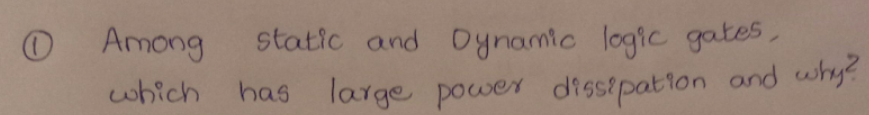 ① Among static and Dynamic logic gates,
which has large power dissipation and why?